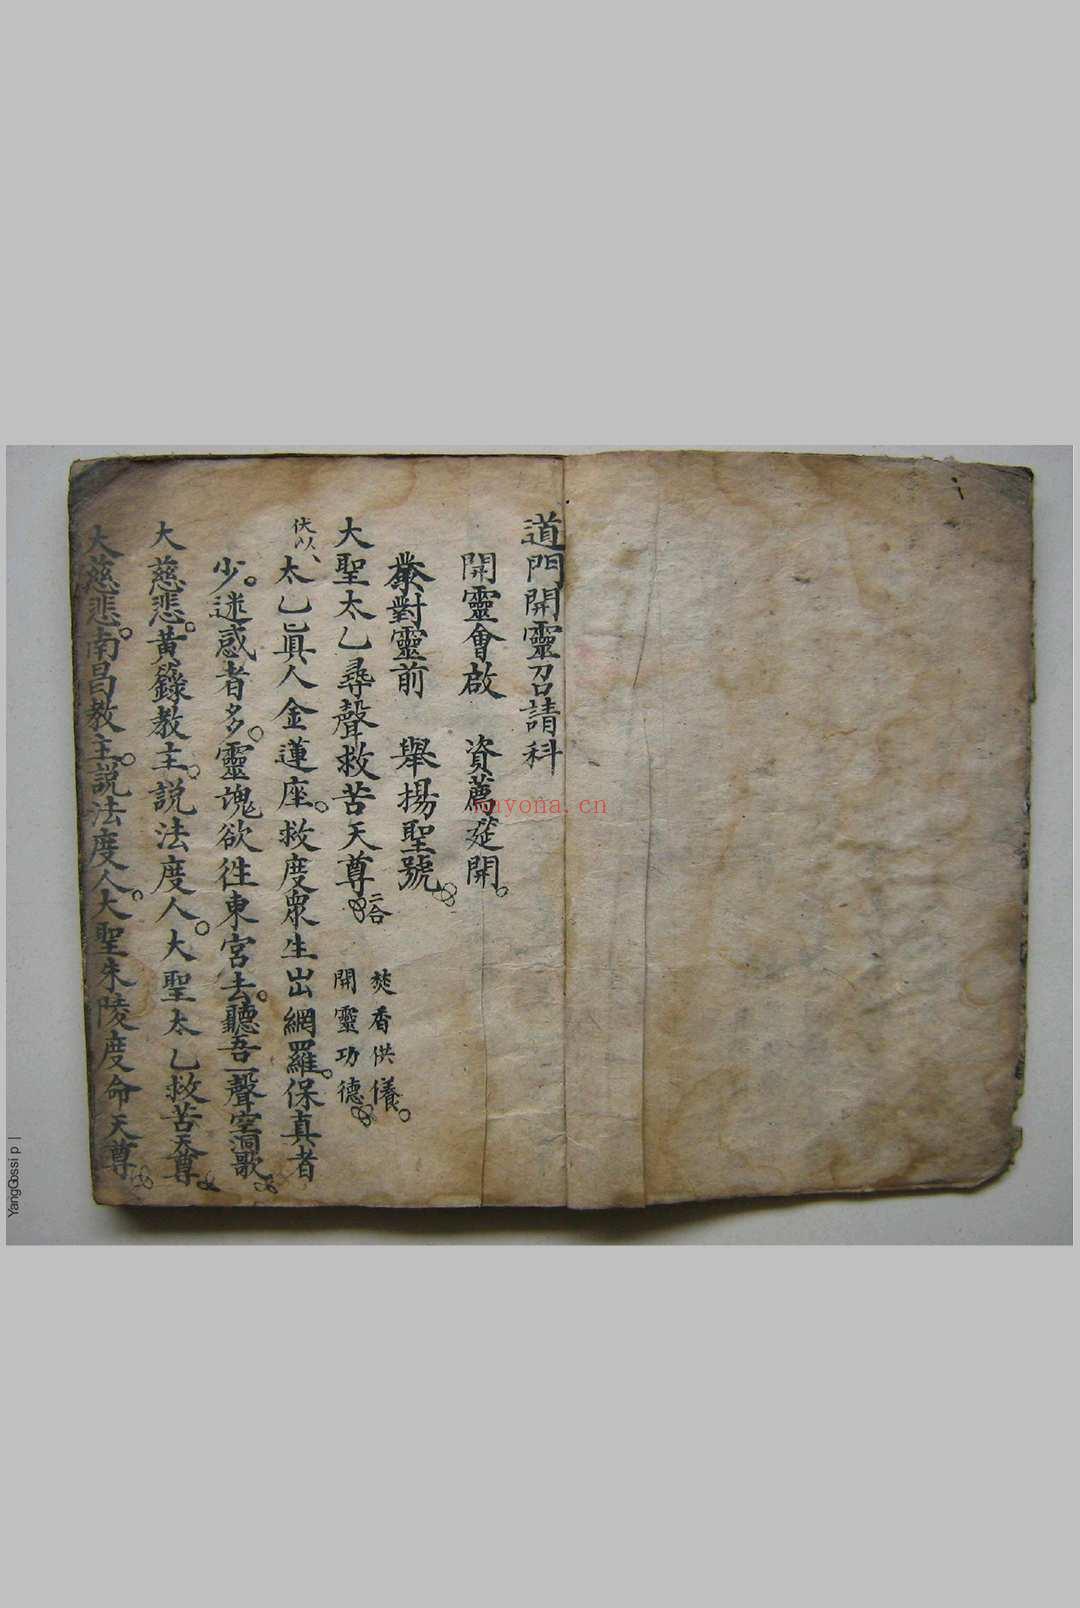 道門開靈召請科
開靈會啟　資薦筵開
衆對靈前　舉揚聖號
大聖太乙尋聲救苦天尊　二合　焚香供儀
開靈功德
伏以、太乙眞人金蓮座。救度眾生出網羅。保真者
少。迷惑者多。靈魂欲徃東宮去。聽吾一聲空洞歌
大慈悲。黃籙教主。說法度人。大聖太乙救苦天尊
大慈悲。南昌教主。説法度人。大聖朱陵度命天尊
YangGossip |